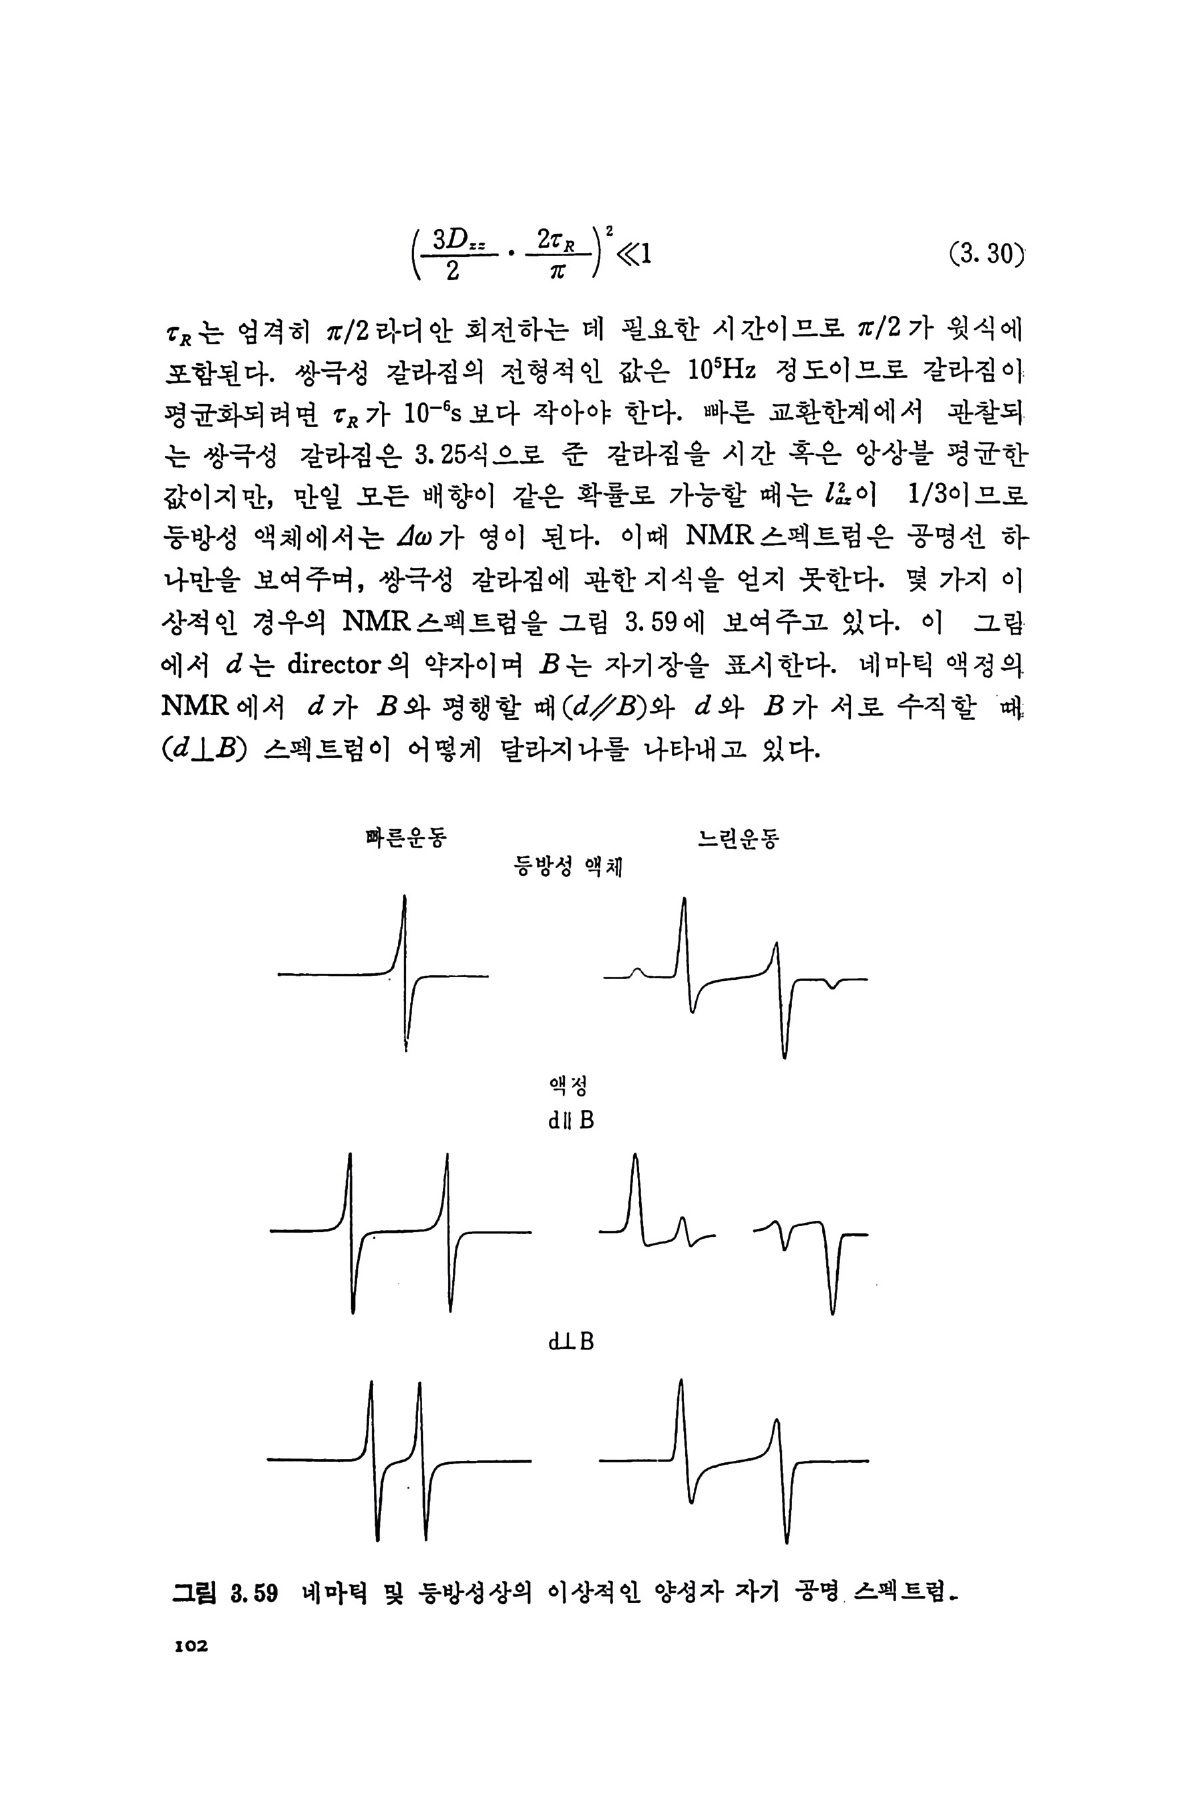 (3D_zz/2 · 2τ_R/π)²≪1 (3. 30)
τ_R는 엄격히 π/2라디안 회전하는 데 필요한 시간이므로 π/2가 윗식에
포함된다. 쌍극성 갈라짐의 전형적인 값은 10⁵Hz 정도이므로 갈라짐이
평균화되려면 τ_R가 10⁻⁶s보다 작아야 한다. 빠른 교환한계에서 관찰되
는 쌍극성 갈라짐은 3. 25식으로 준 갈라짐을 시간 혹은 앙상블 평균한
값이지만, 만일 모든 배향이 같은 확률로 가능할 때는 l²_az이 1/3이므로
등방성 액체에서는 Δω가 영이 된다. 이때 NMR스펙트럼은 공명선 하
나만을 보여주며, 쌍극성 갈라짐에 관한 지식을 얻지 못한다. 몇 가지 이
상적인 경우의 NMR스펙트럼을 그림 3. 59에 보여주고 있다. 이 그림
에서 d는 director의 약자이며 B는 자기장을 표시한다. 네마틱 액정의
NMR에서 d가 B와 평행할 때(d∥B)와 d와 B가 서로 수직할 때
(d⊥B) 스펙트럼이 어떻게 달라지나를 나타내고 있다.
빠른운동 느린운동
등방성 액체
액정
d∥B
d⊥B
그림 3. 59 네마틱 및 등방성상의 이상적인 양성자 자기 공명 스펙트럼.
102